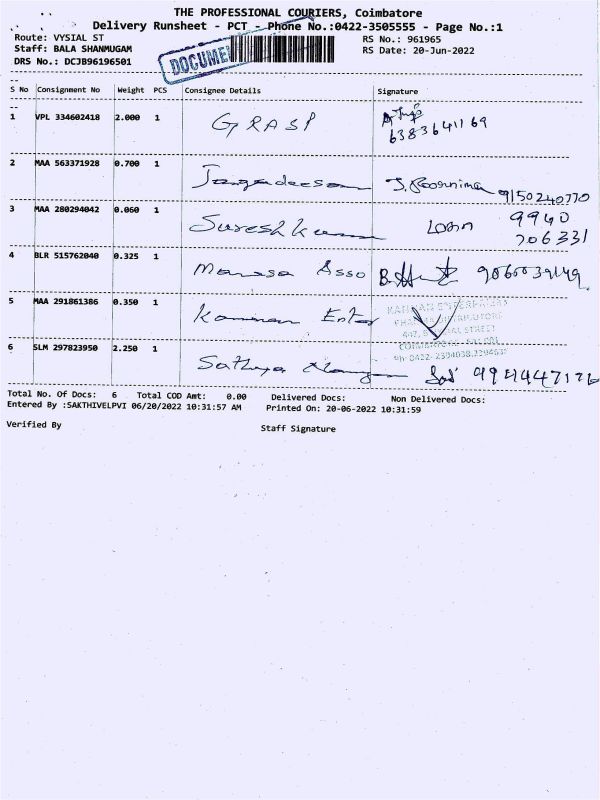 THE PROFESSIONAL COURIERS, Coimbatore
Delivery Runsheet - PCT - Phone No.:0422-3505555 - Page No.:1
Route: VYSIAL ST
RS No.: 961965
Staff: BALA SHANMUGAM
RS Date: 20-Jun-2022
DRS No.: DCJB96196501
DOCUME
S No Consignment No Weight PCS Consignee Details Signature
1 VPL 334602418 2.000 1 GRASP
6383641169
2 MAA 563371928 0.700 1 Jagadeesan J. Poornima 9150240770
3 MAA 280294042 0.060 1 Suresh Kumar 9940
706331
4 BLR 515762040 0.325 1 Manasa Asso
5 MAA 291861386 0.350 1 Kannan Enter
KANNAN ENTERPRISES
6 SLM 297823950 2.250 1 Sathya
Total No. Of Docs: 6 Total COD Amt: 0.00 Delivered Docs: Non Delivered Docs:
Entered By :SAKTHIVELPVI 06/20/2022 10:31:57 AM Printed On: 20-06-2022 10:31:59
Verified By
Staff Signature